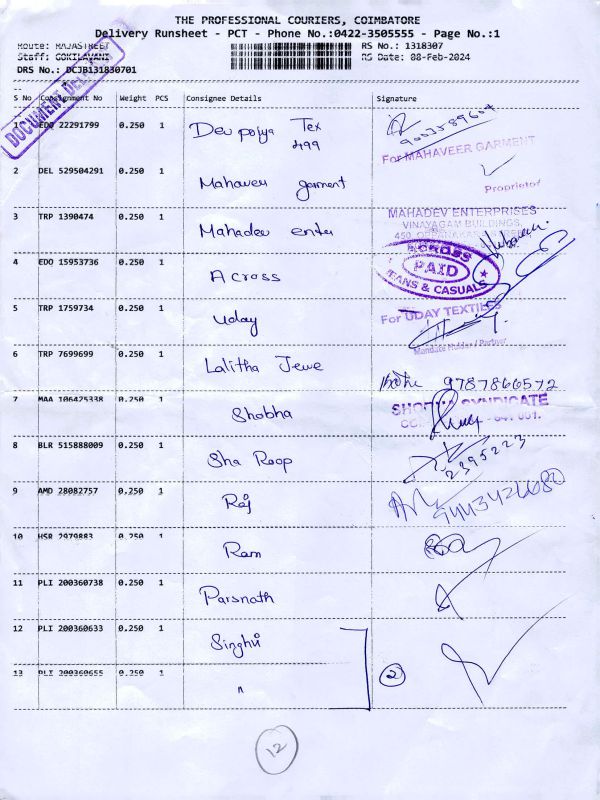 THE PROFESSIONAL COURIERS, COIMBATORE
Delivery Runsheet - PCT - Phone No.:0422-3505555 - Page No.:1
Route: RAJASTREET
RS No.: 1318307
Staff: GOKILAVANI
RS Date: 08-Feb-2024
DRS No.: DCJB131830701
S No Consignment No Weight PCS Consignee Details Signature
1 EDO 22291799 0.250 1 Dev Tex
499
For MAHAVEER GARMENT
2 DEL 529504291 0.250 1 Mahaveer garment
Proprietor
3 TRP 1390474 0.250 1 Mahadev enter
MAHADEV ENTERPRISES
VINAYAGAM BUILDINGS,
4 EDO 15953736 0.250 1 Across
ACROSS
PAID
JEANS & CASUALS
5 TRP 1759734 0.250 1 Uday
For UDAY TEXTILES
Mandate Holder / Partner
6 TRP 7699699 0.250 1 Lalitha Jewe
9787866572
7 MAA 106425338 0.250 1 Shobha
SYNDICATE
8 BLR 515888009 0.250 1 Sha Roop
2395223
9 AMD 28082757 0.250 1 Raj
9443426680
10 HSR 2979883 0.250 1 Ram
11 PLI 200360738 0.250 1 Parsnath
12 PLI 200360633 0.250 1 Singhvi
13 PLI 200360655 0.250 1 "
2
12